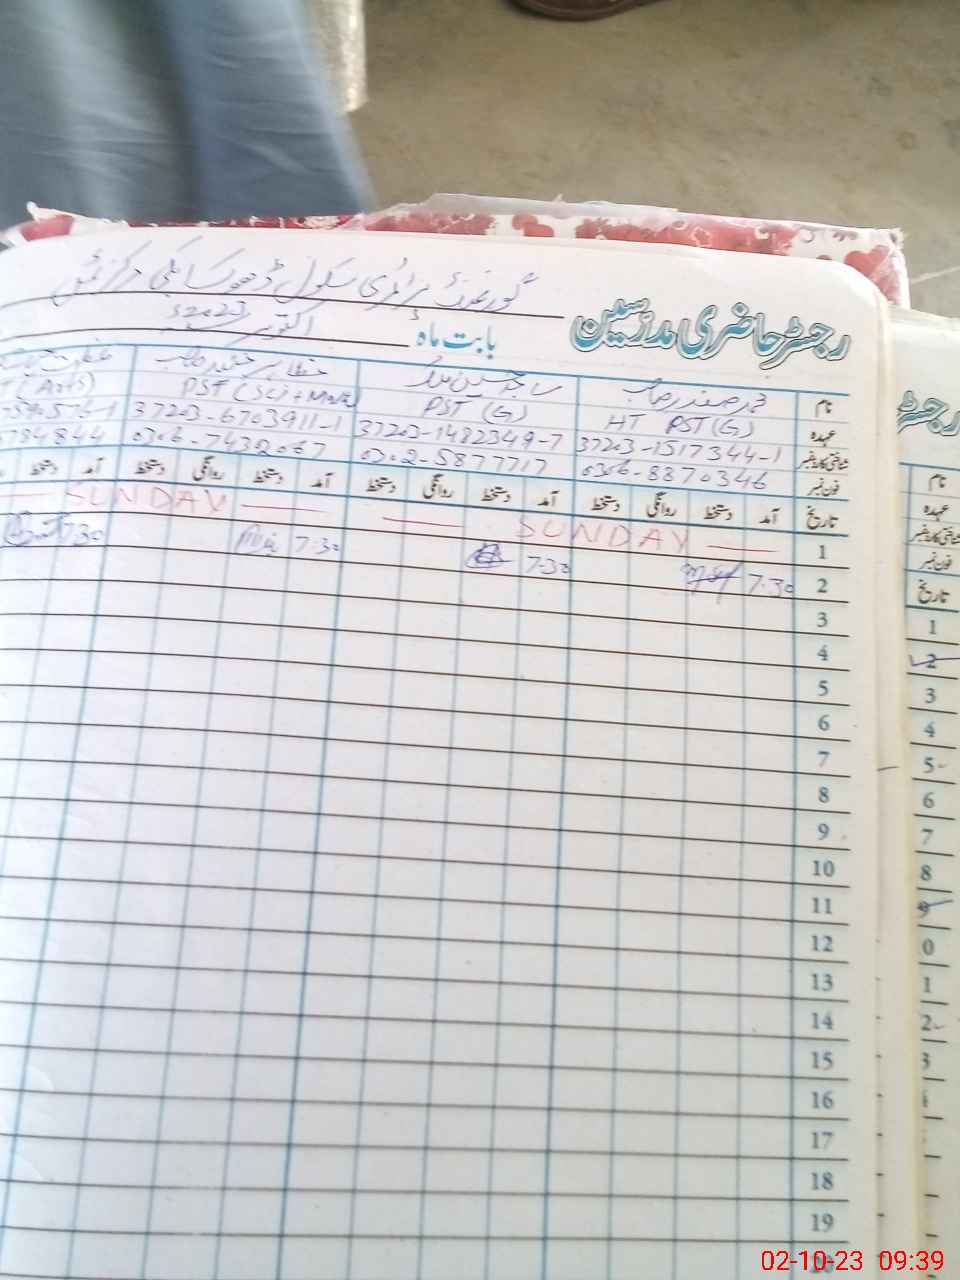 رجسٹر حاضری مدرسین گورنمنٹ پرائمری سکول ڈھوک
بابت ماہ اکتوبر 2023ء
نام محمد صفدر صاحب ساجد حسین ملک صاحب
عہدہ HT PST (G) PST (G) PST (Sci + Math) (Arts)
شناختی کارڈ نمبر 37203-1517344-1 37203-1482349-7 37203-6703911-1
فون نمبر 0306-8870346 0302-5877717 0306-7432067 784844
تاریخ آمد دستخط روانگی دستخط آمد دستخط روانگی دستخط آمد دستخط روانگی دستخط آمد دستخط
1 SUNDAY SUNDAY
2 7.30 7.30 7.30 7.30
3
4
5
6
7
8
9
10
11
12
13
14
15
16
17
18
19
20
رجسٹر
نام
عہدہ
شناختی کارڈ نمبر
فون نمبر
تاریخ
1
2
3
4
5
6
7
8
9
0
1
2
3
02-10-23 09:39